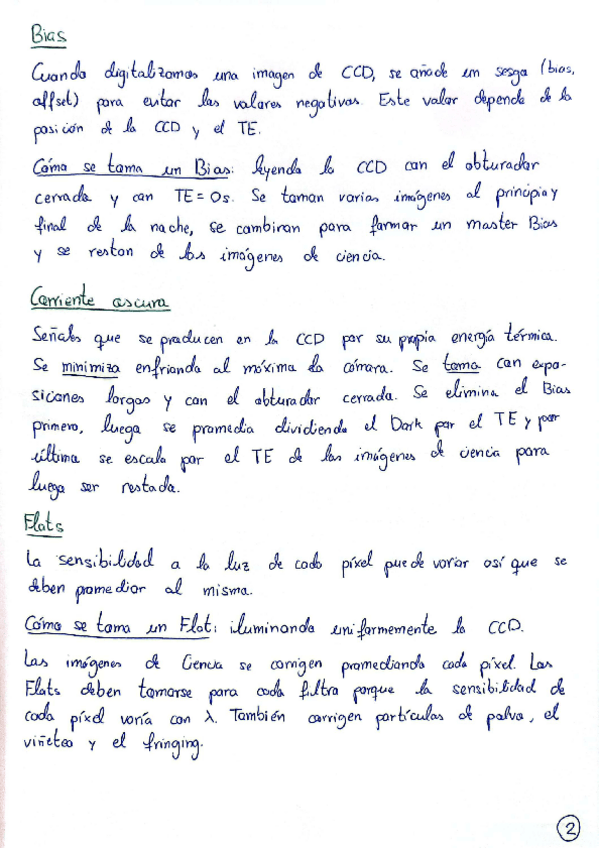 Bias
Cuando digitalizamos una imagen de CCD, se añade un sesgo (bias,
offset) para evitar los valores negativos. Este valor depende de la
posición de la CCD y el TE.
Cómo se toma un Bias: leyendo la CCD con el obturador
cerrado y con TE=0s. Se toman varias imágenes al principio y
final de la noche, se combinan para formar un master Bias
y se restan de las imágenes de ciencia.
Corriente oscura
Señales que se producen en la CCD por su propia energía térmica.
Se minimiza enfriando al máximo la cámara. Se toma con expo-
siciones largas y con el obturador cerrado. Se elimina el Bias
primero, luego se promedia dividiendo el Dark por el TE y por
último se escala por el TE de las imágenes de ciencia para
luego ser restada.
Flats
La sensibilidad a la luz de cada píxel puede variar así que se
deben promediar al mismo.
Cómo se toma un Flat: iluminando uniformemente la CCD.
Las imágenes de Ciencia se corrigen promediando cada píxel. Los
Flats deben tomarse para cada filtro porque la sensibilidad de
cada píxel varía con λ. También corrigen partículas de polvo, el
viñeteo y el fringing.
2